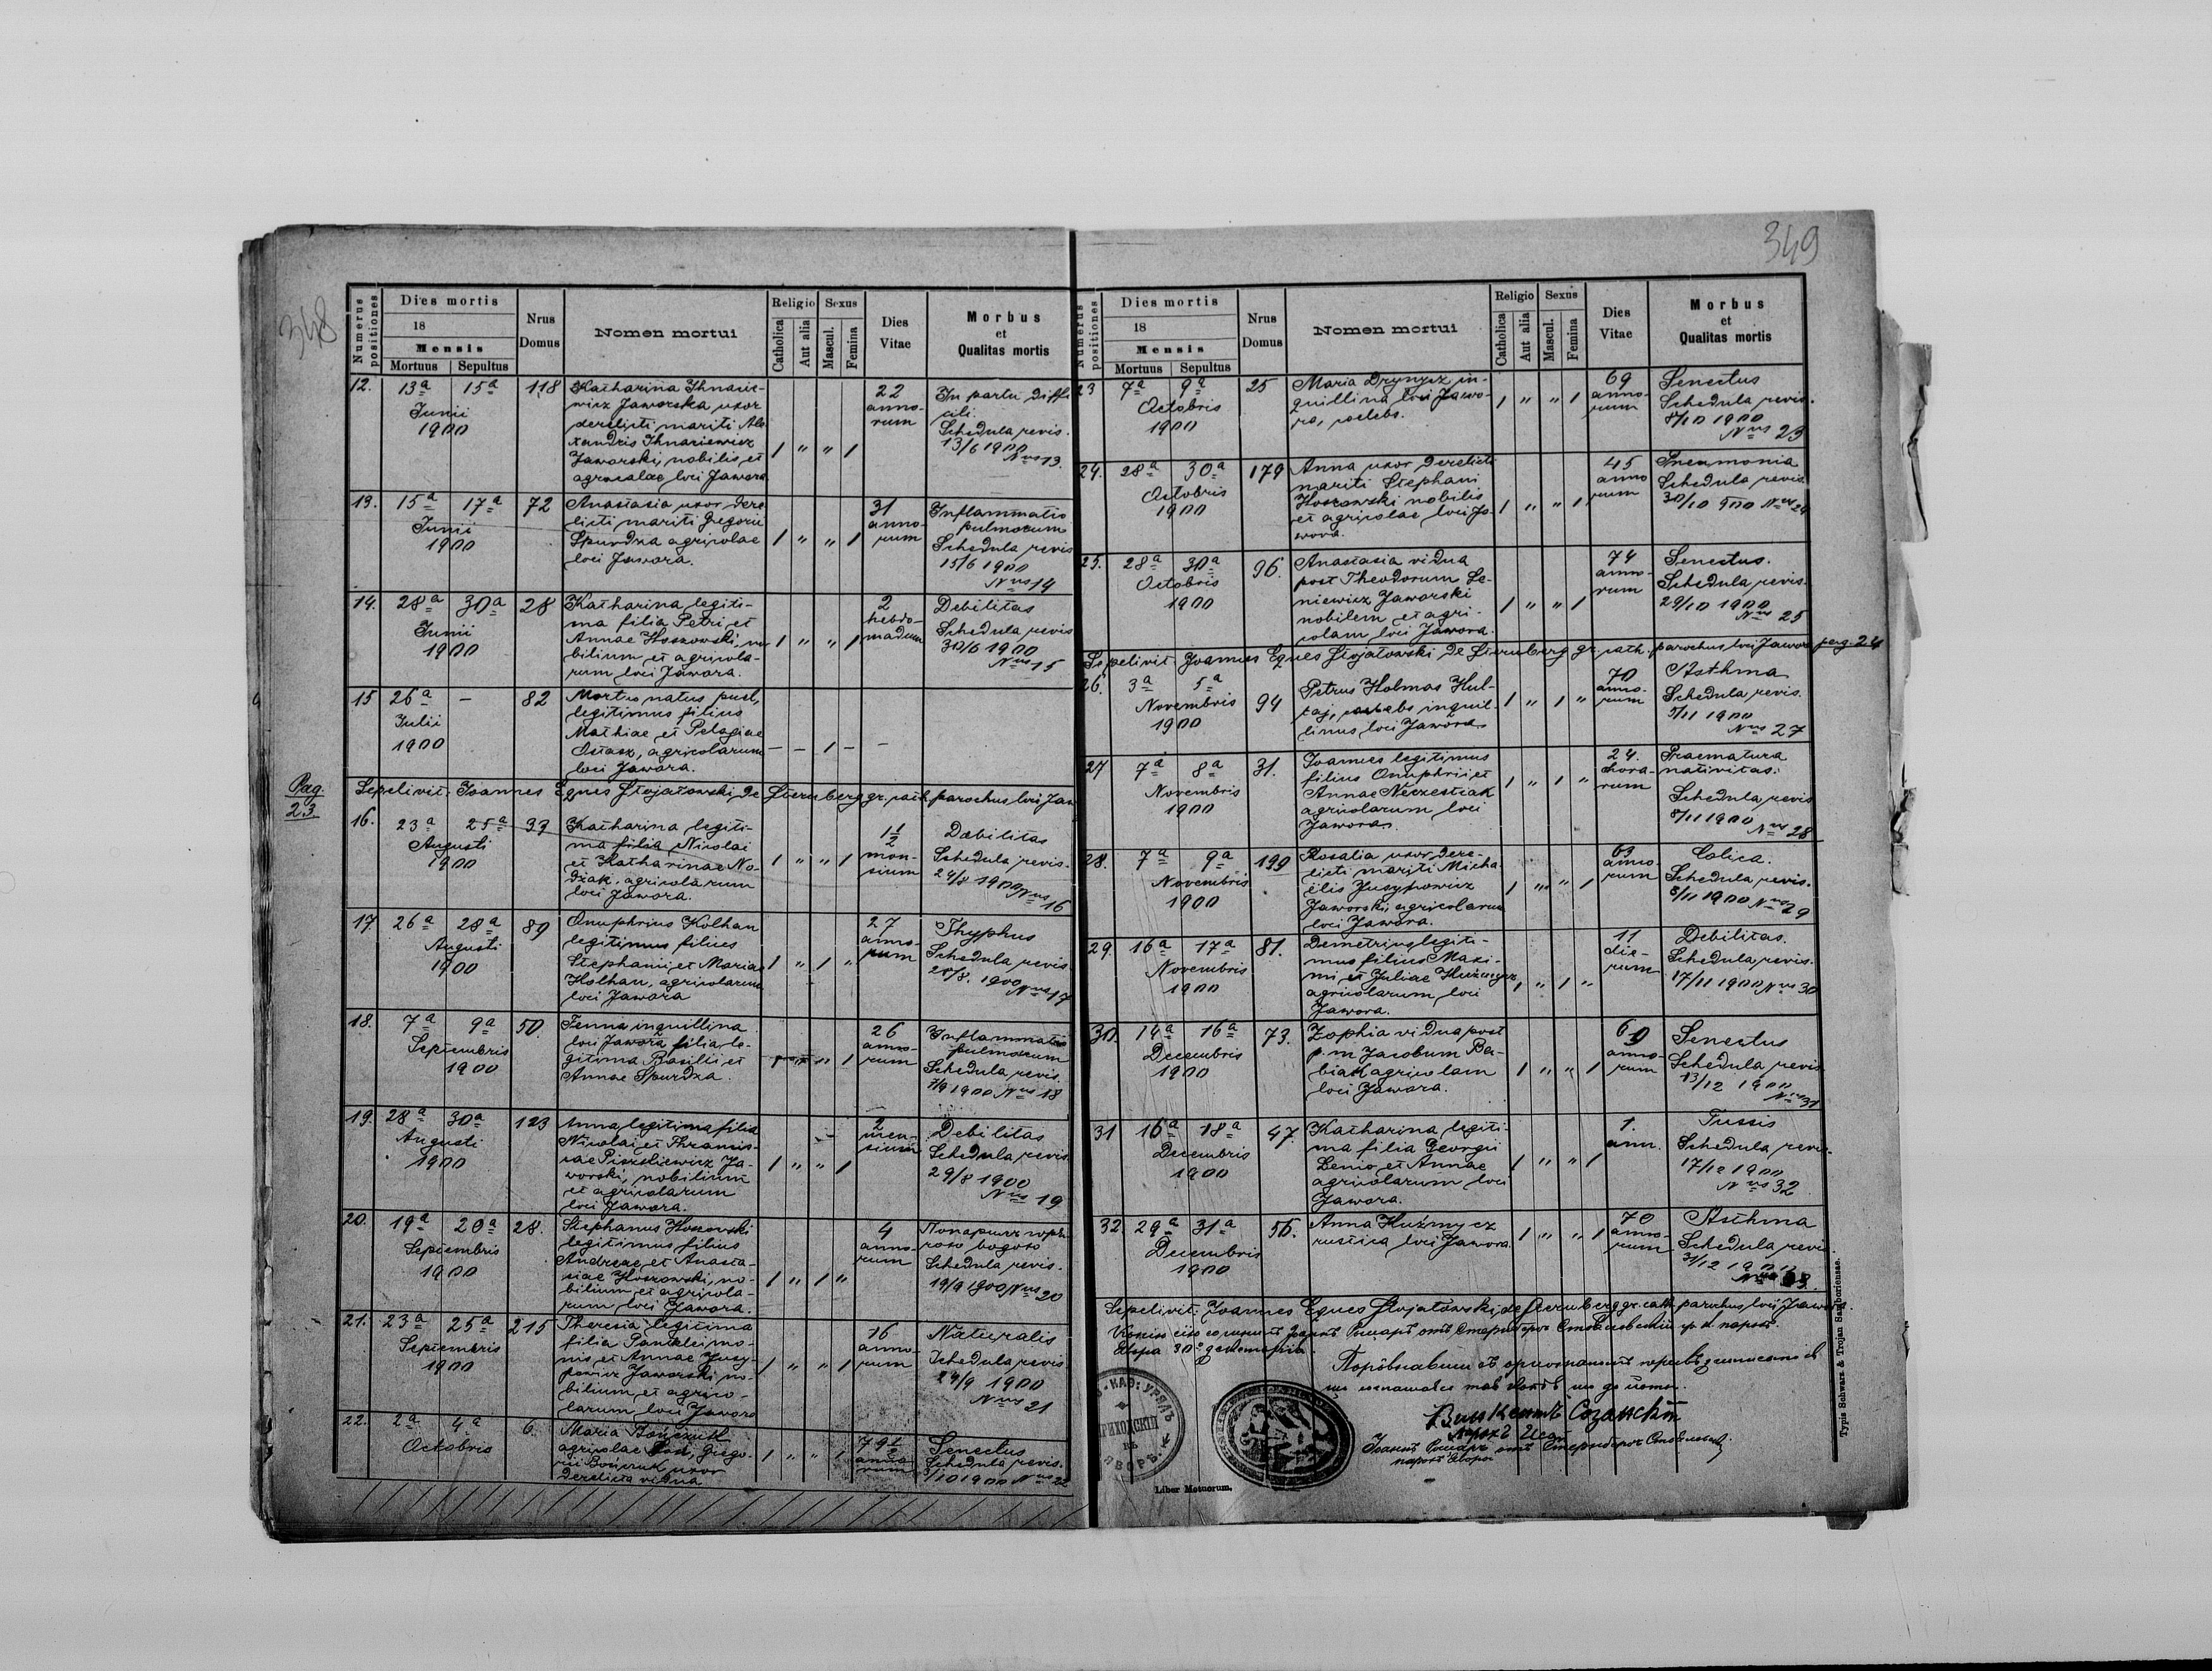 348
Numerus positiones
Dies mortis
18
Mensis
Mortuus Sepultus
Nrus Domus
Nomen mortui
Religio
Catholica
Aut alia
Sexus
Mascul.
Femina
Dies Vitae
Morbus
et
Qualitas mortis
12. 13ª 15ª Junii 1900 118
Katharina Ihnacie-
wicz Jaworska uxor
derelicti mariti Ale
xandris Ihnaciewicz
Jaworski, nobilis et
agricolae loci Jawora
1 " " 1
22 anno-
rum
In partu diffi
cili.
Schedula revis.
13/6 1900
Nus 13.
13. 15ª 17ª Junii 1900 72
Anastasia uxor dere
licti mariti Gregorii
Spurdza agricolae
loci Jawora.
1 " " 1
31 anno-
rum
Inflammatio
pulmorum
Schedula revis
15/6 1900
Nus 14
14. 28ª 30ª Junii 1900 28
Katharina legiti-
ma filia Petri et
Annae Hoszowski, no
bilium et agricola-
rum loci Jawora.
1 " " 1
2 hebdo-
madum
Debilitas
Schedula revis
30/6 1900
Nus 15
15 26ª — Julii 1900 82
Mortuo natus puel,
legitimus filius
Mathiae et Pelagiae
Ostasz, agricolarum
loci Jawora.
— — 1 — —
Pag. 23
Sepelivit. Joannes Eques Stojałowski, de Sternberg gr. cath. parochus loci Jaw
16. 23ª 25ª Augusti 1900 93
Katharina legiti-
ma filia Nicolai
et Katharinae No-
dżak, agricolarum
loci Jawora.
1 " " 1
1 1/2 men-
sium
Debilitas
Schedula revis.
24/8 1900 Nus 16
17 26ª 28ª Augusti 1900 89
Onuphrius Kolhan
legitimus filius
Stephanii et Mariae
Kolhan, agricolarum
loci Jawora
1 " 1 "
27 anno-
rum
Thyphus
Schedula revis.
28/8. 1900
Nus 17
18. 7ª 9ª Septembris 1900 50.
Tenna inquillina
loci Jawora filia le-
gitima Basilii et
Annae Spurdza.
" 1
26 anno-
rum
Inflammatio
pulmorum
Schedula revis.
7/9 1900 Nus 18
19. 28ª 30ª Augusti 1900 123
Anna legitima filia
Nicolai et Francis-
cae Piszkiewicz Ja-
worski, nobilium
et agricolarum
loci Jawora.
1 " " 1
2 men-
sium
Debilitas
Schedula revis.
29/8 1900
Nus 19
20. 19ª 20ª Septembris 1900 28.
Stephanus Hoszowski
legitimus filius
Andreae et Anasta-
siae Hoszowski, no-
bilium et agricola-
rum loci Jawora.
1 " 1 "
4 anno-
rum
Schedula revis.
19/9 1900 Nus 20
21. 23ª 25ª Septembris 1900 215
Theresia legitima
filia Pantelei mo-
nis et Annae Jusy-
powicz Jaworski, no-
bilium et agrico-
larum loci Jawora
1 " " 1
16 anno-
rum
Naturalis
Schedula revis.
24/9 1900
Nus 21
22. 2ª 4ª Octobris 6.
Maria Bonczuk
agricolae Grego-
rii Bonczuk uxor
derelicta vidua
1 " " 1
79 1/2 anno
rum
Senectus
Schedula revis.
3/10 1900 Nus 22
349
Numerus positiones
Dies mortis
18
Mensis
Mortuus Sepultus
Nrus Domus
Nomen mortui
Religio
Catholica
Aut alia
Sexus
Mascul.
Femina
Dies Vitae
Morbus
et
Qualitas mortis
23 7ª 9ª Octobris 1900 25
Maria Drynycz in-
quillina loci Jawo-
ra, coelebs.
1 " " 1
69 anno-
rum
Senectus
Schedula revis.
8/10 1900
Nus 23
24. 28ª 30ª Octobris 1900 179
Anna uxor derelicti
mariti Stephani
Hoszowski nobilis
et agricolae loci Ja-
wora.
1 " " 1
45 anno
rum
Pneumonia
Schedula revis
30/10 900 Nus 24
25. 28ª 30ª Octobris 1900 96.
Anastasia vidua
post Theodorum Se-
niewicz Jaworski
nobilem et agri-
colam loci Jawora.
1 " " 1
74 anno-
rum
Senectus.
Schedula revis.
29/10 1900
Nus 25
Sepelivit. Joannes Eques Stojałowski de Sternberg gr. cath. parochus loci Jawora pag. 24
26. 3ª 5ª Novembris 1900 94
Petrus Holmas Hul-
taj, coelebs inquil-
linus loci Jawora
1 " 1 "
70 anno-
rum
Asthma
Schedula revis.
5/11 1900
Nus 27
27 7ª 8ª Novembris 1900 31.
Joannes legitimus
filius Onuphrii et
Annae Neczestiak
agricolarum loci
Jawora.
1 " 1 "
24. hora-
rum
Praematura
nativitas.
Schedula revis
8/11 1900
Nus 28
28. 7ª 9ª Novembris 1900 199
Rosalia uxor dere-
licti mariti Micha-
elis Jusypowicz
Jaworski, agricolarum
loci Jawora.
1 " " 1
63 anno-
rum
Colica.
Schedula revis.
8/11 1900 Nus 29
29. 16ª 17ª Novembris 1900 81.
Demetrius legiti-
mus filius Maxi-
mi et Juliae Kuzmycz
agricolarum loci
Jawora.
1 " 1 "
11 die-
rum
Debilitas.
Schedula revis.
17/11 1900 Nus 30
30. 14ª 16ª Decembris 1900 73.
Zophia vidua post
p. m Jacobum Ba-
biak agricolam
loci Jawora.
1 " " 1
69 anno-
rum
Senectus
Schedula revis
13/12 1900
Nus 31
31 16ª 18ª Decembris 1900 47.
Katharina legiti-
ma filia Georgii
Lenio et Annae
agricolarum loci
Jawora.
1 " " 1
1. ann.
Tussis
Schedula revis.
17/12 1900
Nus 32
32. 29ª 31ª Decembris 1900 56.
Anna Kuźmycz
rustica loci Jawora
1 " " 1
70 anno-
rum
Asthma
Schedula revis.
31/12 1900
Sepelivit. Joannes Eques Stojałowski, de Sternberg gr. cath. parochus loci Jawora.
Винкентъ Созанскій
Liber Motuorum.
Typis Schwarz & Trojan Samboriensae.